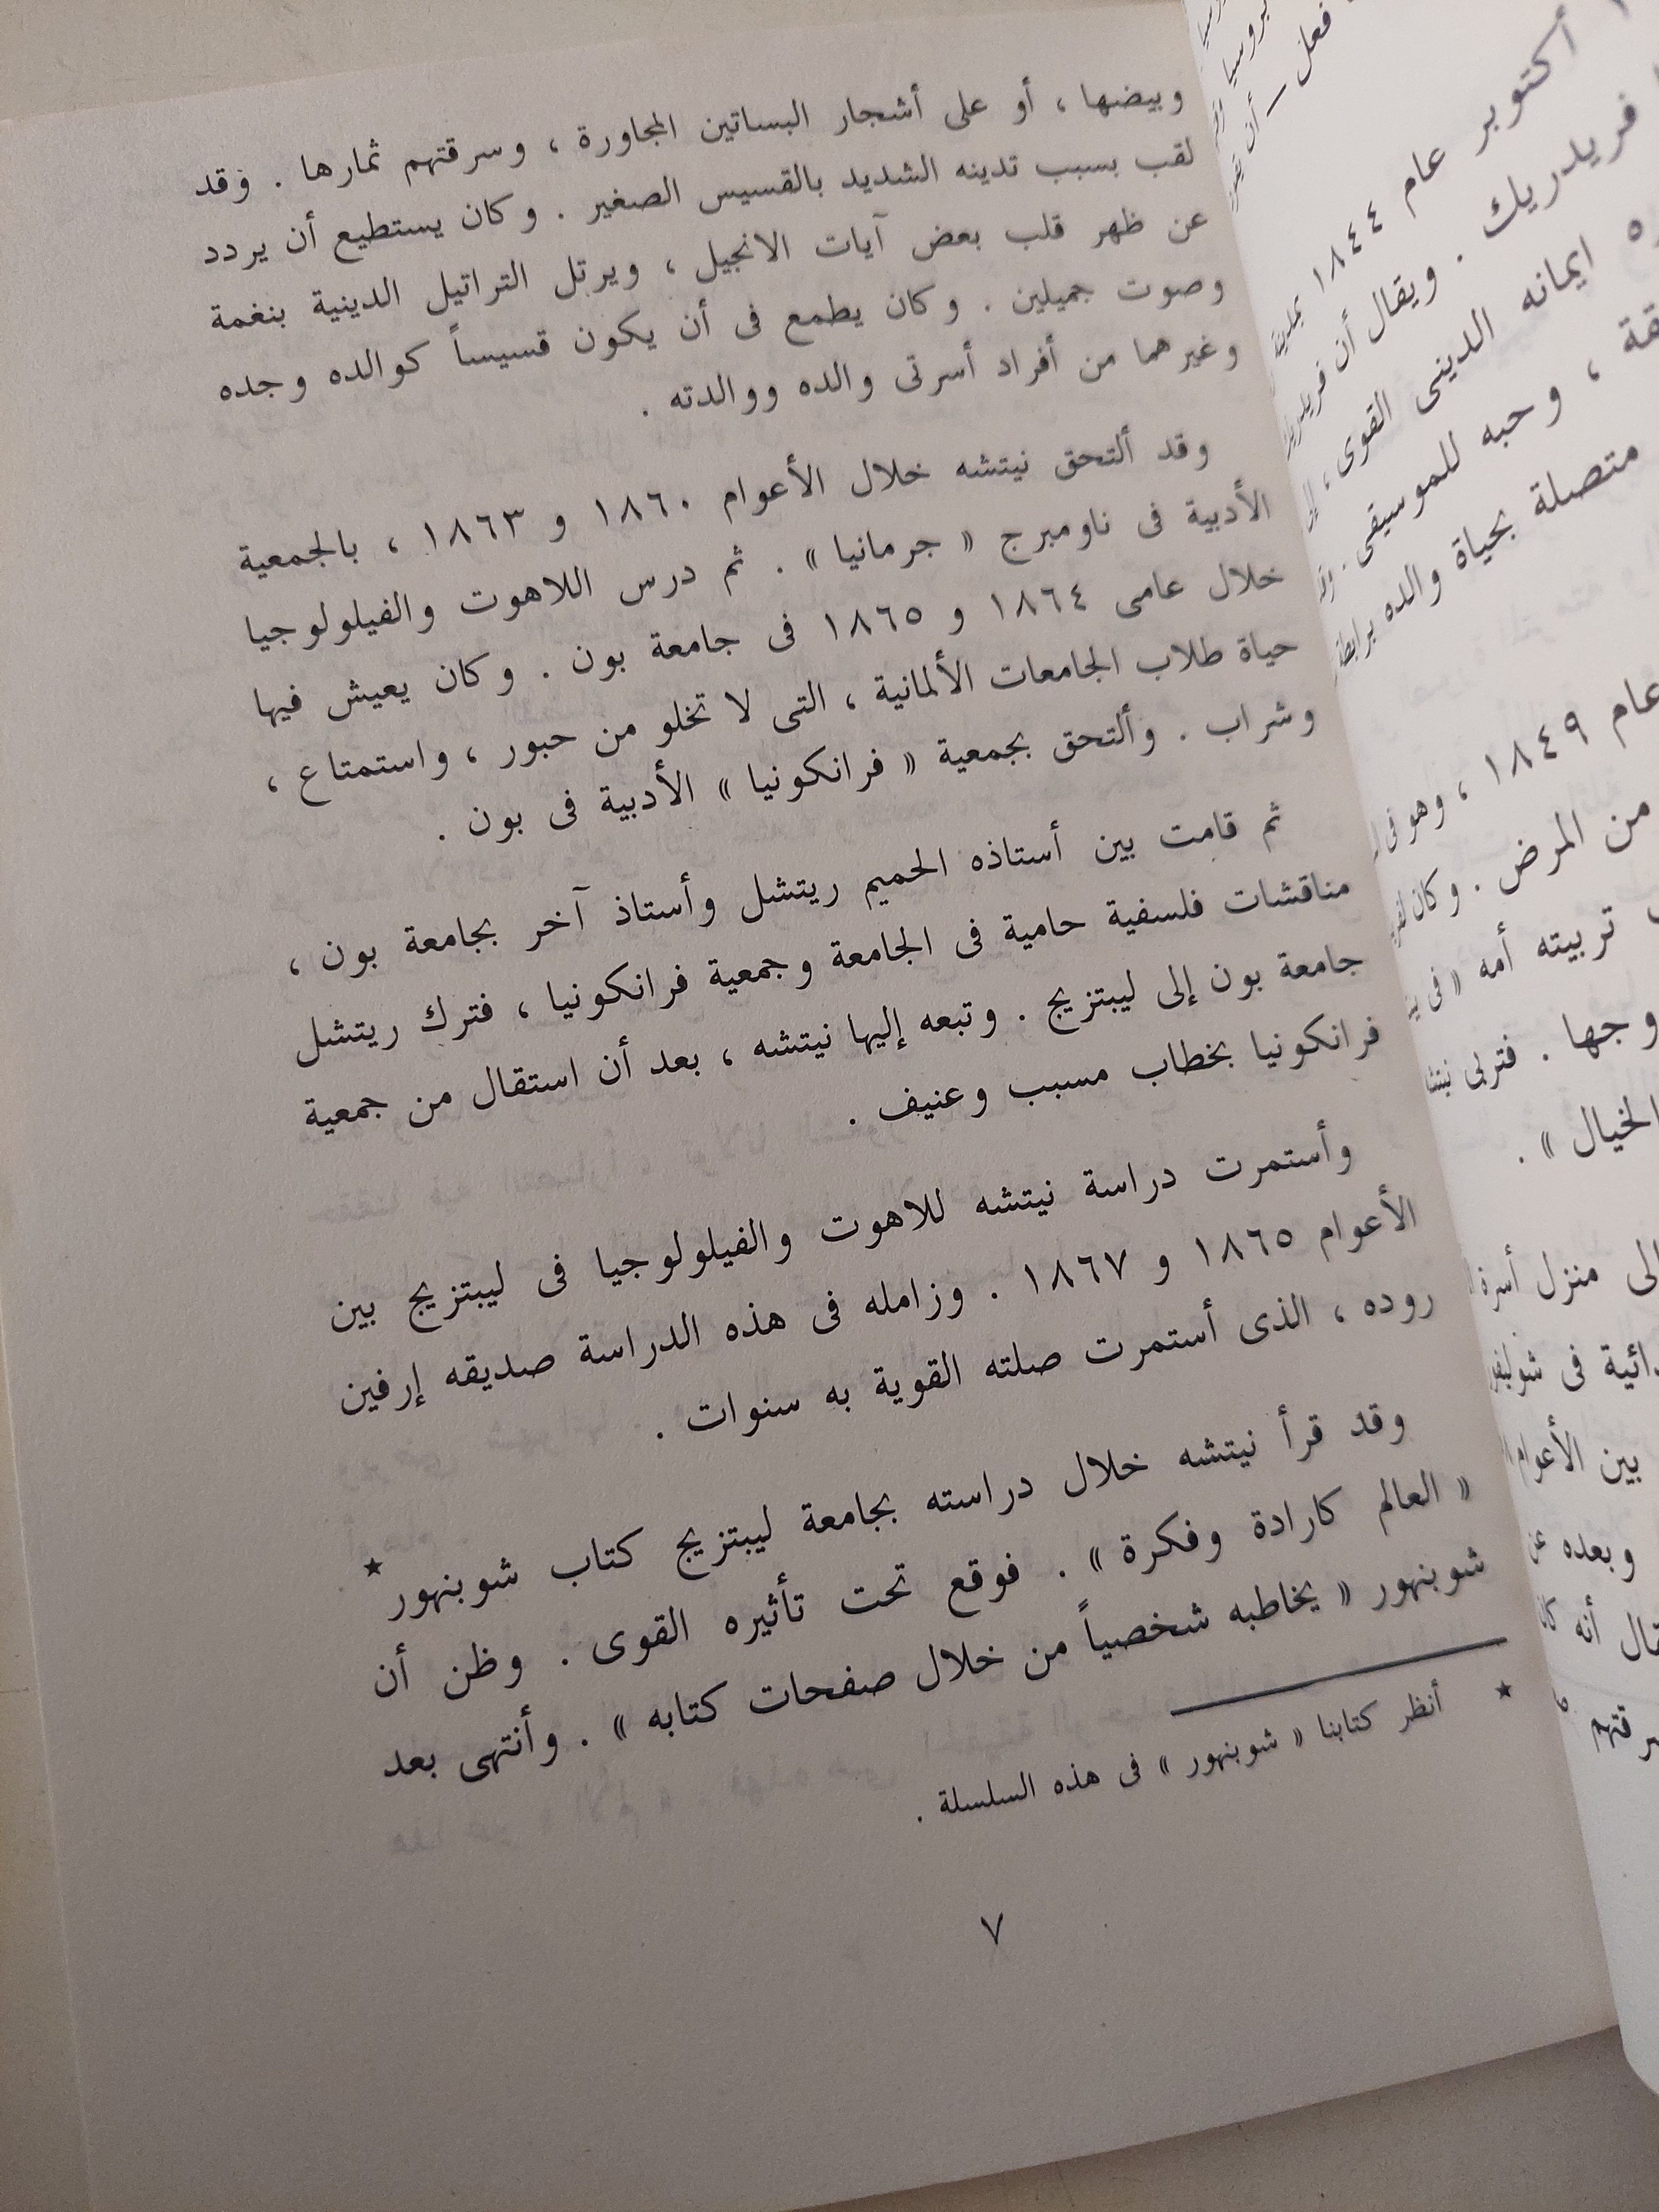 وبيضها ، أو على أشجار البساتين المجاورة ، وسرقتهم ثمارها . وقد
لقب بسبب تدينه الشديد بالقسيس الصغير . وكان يستطيع أن يردد
عن ظهر قلب بعض آيات الانجيل ، ويرتل التراتيل الدينية بنغمة
وصوت جميلين . وكان يطمع فى أن يكون قسيساً كوالده وجده
وغيرهما من أفراد أسرتى والده ووالدته .
وقد ألتحق نيتشه خلال الأعوام ١٨٦٠ و ١٨٦٣ ، بالجمعية
الأدبية فى ناومبرج « جرمانيا » . ثم درس اللاهوت والفيلولوجيا
خلال عامى ١٨٦٤ و ١٨٦٥ فى جامعة بون . وكان يعيش فيها
حياة طلاب الجامعات الألمانية ، التى لا تخلو من حبور ، واستمتاع ،
وشراب . وألتحق بجمعية « فرانكونيا » الأدبية فى بون .
ثم قامت بين أستاذه الحميم ريتشل وأستاذ آخر بجامعة بون ،
مناقشات فلسفية حامية فى الجامعة وجمعية فرانكونيا ، فترك ريتشل
جامعة بون إلى ليبتزيج . وتبعه إليها نيتشه ، بعد أن استقال من جمعية
فرانكونيا بخطاب مسبب وعنيف .
وأستمرت دراسة نيتشه للاهوت والفيلولوجيا فى ليبتزيج بين
الأعوام ١٨٦٥ و ١٨٦٧ . وزامله فى هذه الدراسة صديقه إرفين
روده ، الذى أستمرت صلته القوية به سنوات .
وقد قرأ نيتشه خلال دراسته بجامعة ليبتزيج كتاب شوبنهور *
« العالم كارادة وفكرة » . فوقع تحت تأثيره القوى . وظن أن
شوبنهور « يخاطبه شخصياً من خلال صفحات كتابه » . وأنتهى بعد
* أنظر كتابنا « شوبنهور » فى هذه السلسلة .
٧
فعل — أن
أكتوبر عام ١٨٤٤
فريدريك . ويقال أن
ايمانه الدينى القوى ،
، وحبه للموسيقى .
متصلة بحياة والده برابطة
عام ١٨٤٩ ، وهو فى
من المرض . وكان
تربيته أمه « فى
وجها . فتربى نيتشه
الخيال » .
منزل أسرة
فى
بين الأعوام
وبعده عن
أنه كان